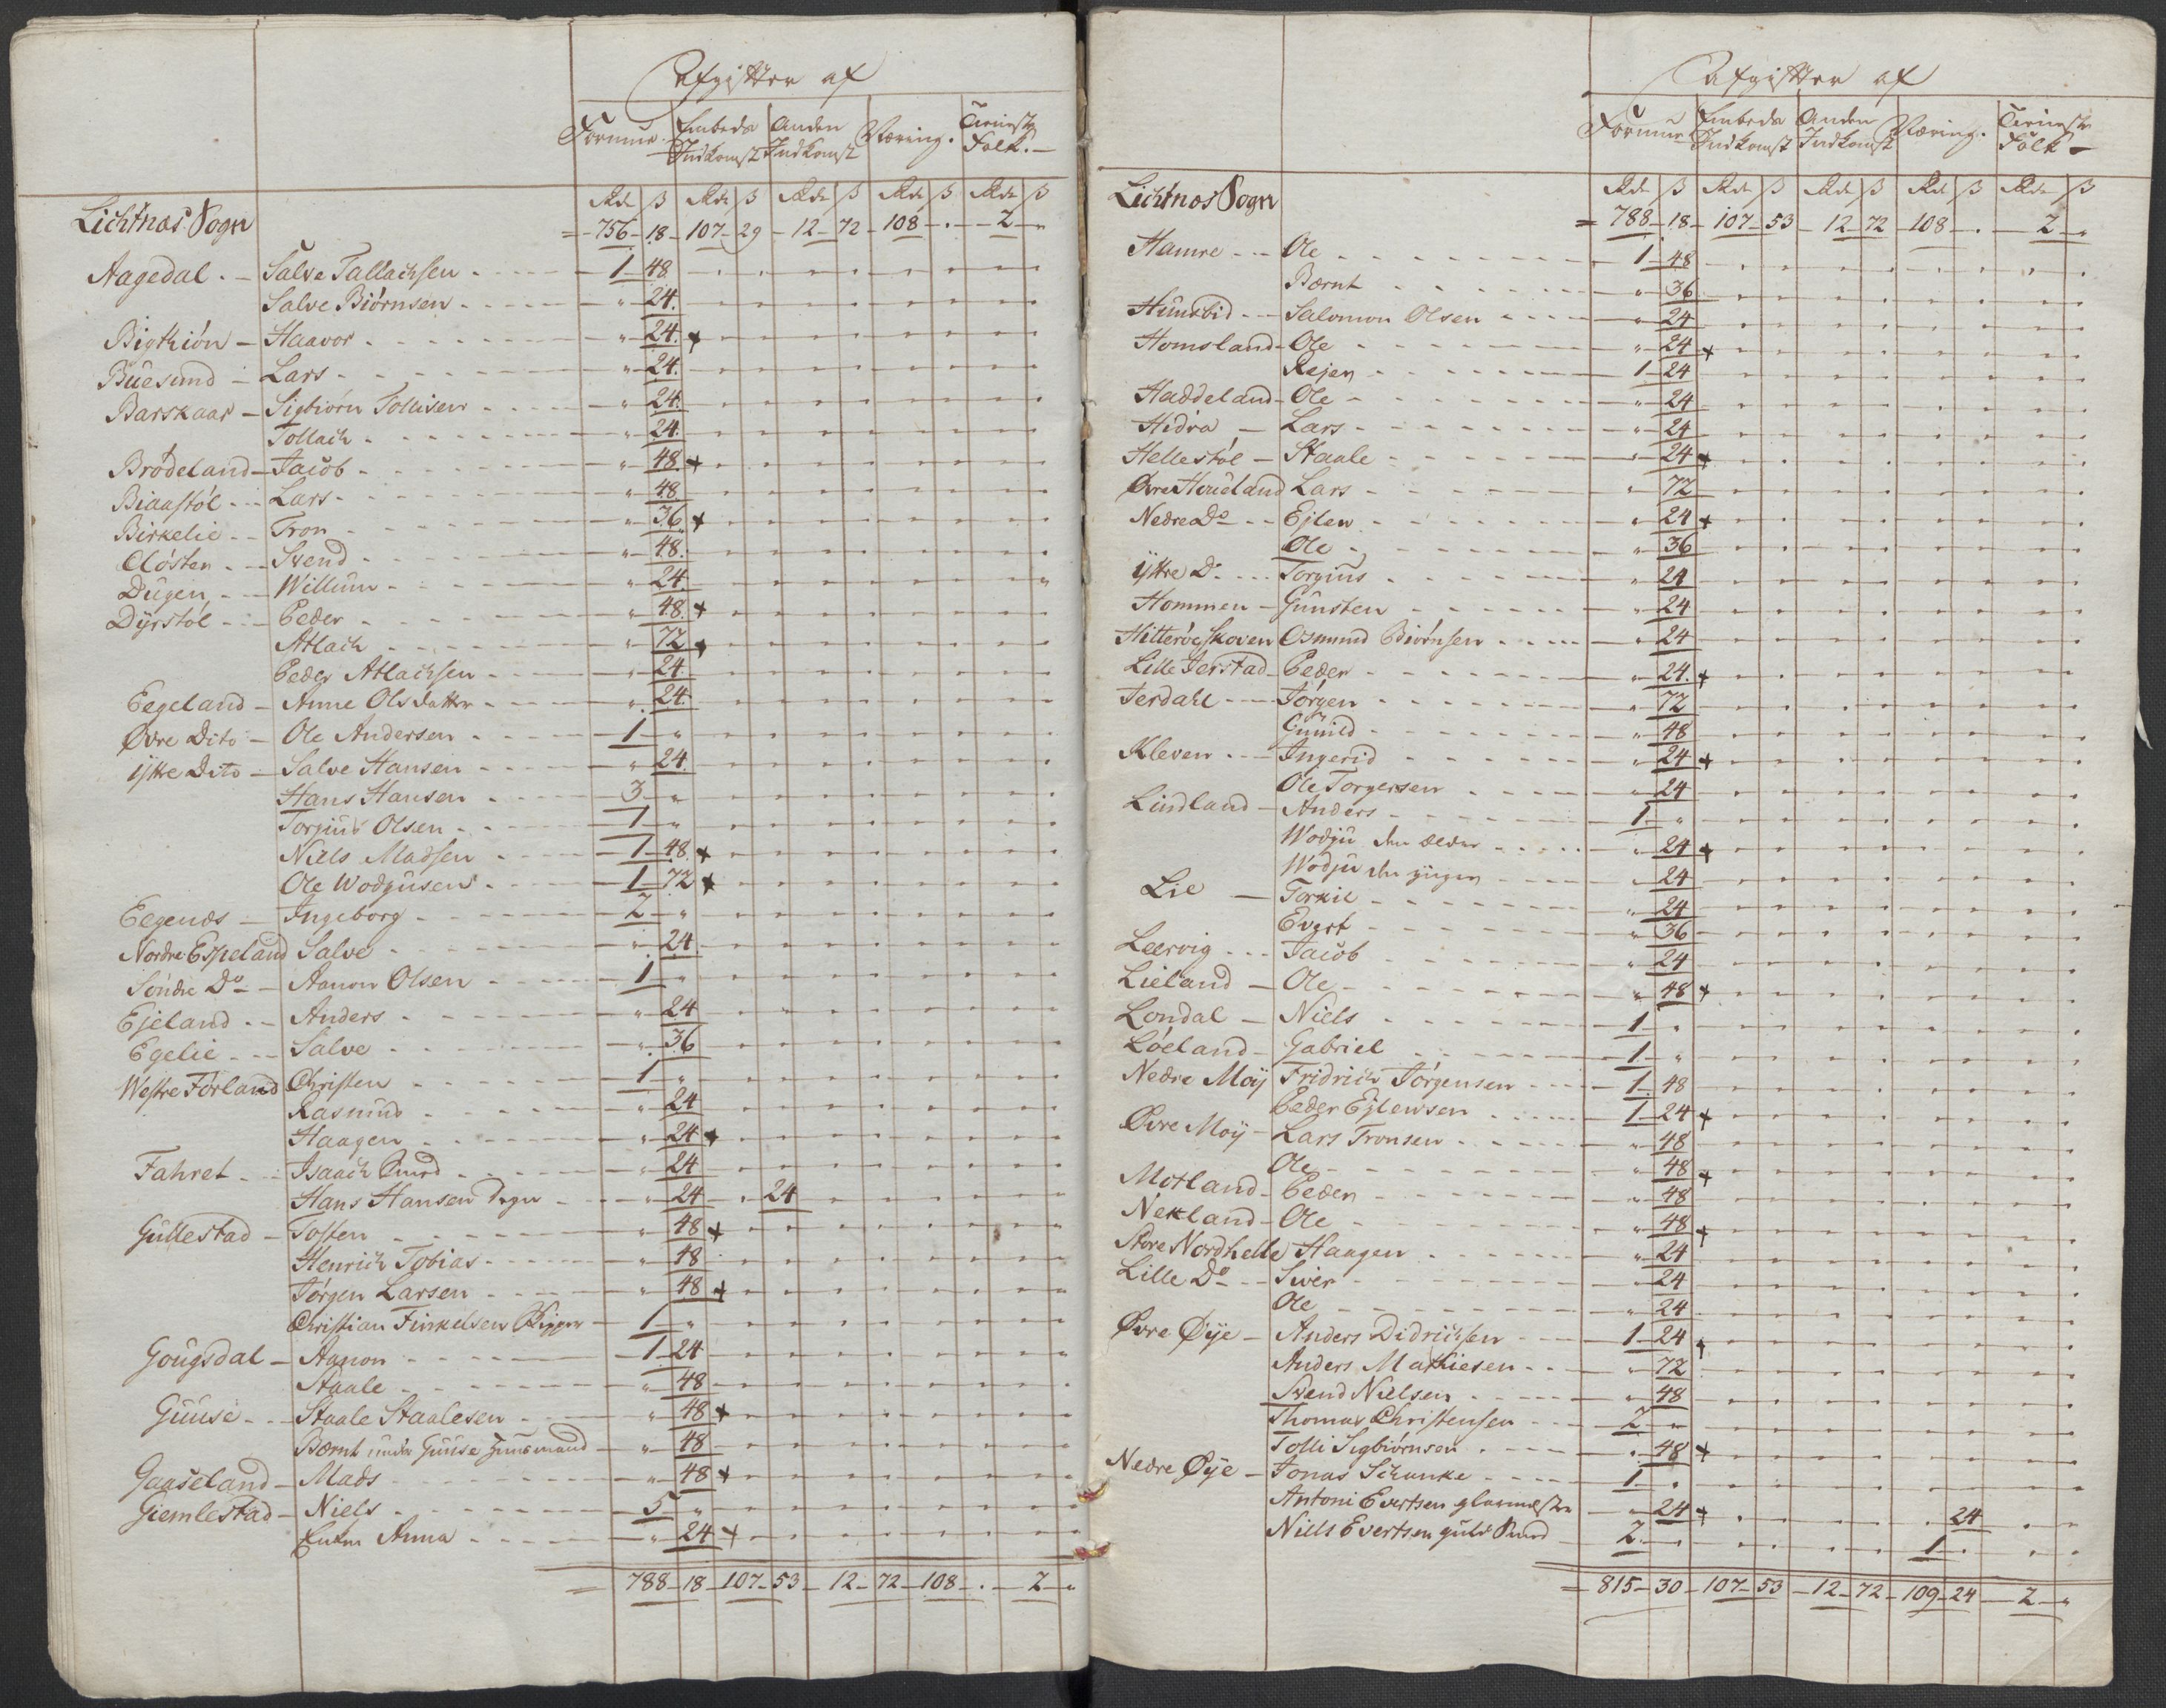 Afgifter af
Formue Embeds Indkomst Anden Indkomst Næring. Tieniste Folk.
Rdr ß Rdr ß Rdr ß Rdr ß Rdr ß
Lichtnas Sogn = 756 - 18 - 107 - 29 - 12 - 72 - 108 - . - 2 - "
Aagedal - Salve Tallachsen - 1 - 48
Salve Biörnsen - " 24.
Bigtiön - Haavor - " 24. +
Buesund - Lars - " 24.
Barskaar - Sigbiörn Tollisen - " 24.
Tollach - " 24.
Brödeland - Jacob - " 48. +
Biaastöl - Lars - " 48
Birkelie - Tron - " 36 +
Clösten - Svend - " 48.
Dugen - Willum - " 24.
Dyrstöl - Peder - " 48. +
Atlach - " 72 +
Peder Atlachsen - " 24.
Eegeland - Anne Olsdatter - " 24.
Øvre Dito - Ole Andersen - 1 - "
ÿtre Dito - Salve Hansen - " 24.
Hans Hansen - 3 - "
Torgius Olsen - 1 - "
Niels Madsen - 1 - 48. +
Ole Wodgusen - 1 - 72 +
Eegenæs - Ingeborg - 2 - "
Nordre Espeland Salve - " 24.
Söndre Do - Aanon Olsen - 1 - "
Ejeland - Anders - " 24
Egelie - Salve - " 36
Westre Förland Christen - 1 - "
Rasmus - " 24
Haagen - " 24 +
Fahret - Isaach Smed - " 24
Hans Hansen Degn - " 24 - " 24
Gullestad - Tosten - " 48 +
Henrich Tobias - " 48
Törgen Larsen - " 48 +
Christian Finkelsen Skipper - 1 - "
Gougsdal - Aanon - 1 24
Staale - " 48
Guuse - Staale Staalesen - " 48 +
Bærnt under Guuse Huusmand - " 48
Gaaseland - Mads - " 48 +
Giemlestad - Niels - 5 - "
Enken Anna - " 24 +
= 788 - 18 - 107 - 53 - 12 - 72 - 108 - . - 2 - "
Afgifter af
Formue Embeds Indkomst Anden Indkomst Næring. Tieniste Folk
Rdr ß Rdr ß Rdr ß Rdr ß Rdr ß
Lichtnos Sogn = 788 - 18 - 107 - 53 - 12 - 72 - 108 - . - 2 - "
Hamre - Ole - 1 - 48
Bærnt - " 36
Huusbid - Salomon Olsen - " 24
Homsland - Ole - " 24 +
Rejer - 1 - 24
Haddeland - Ole - " 24
Hidra - Lars - " 24
Hellestöl - Staale - " 24 +
Øvre Houeland Lars - " 72
Nedre Do - Ejlew - " 24 +
Ole - " 36
ÿtre Do - Torgius - " 24
Hommen - Gunsten - " 24
Hitteröe Skoven Osmund Biörnsen - " 24
Lille Jerstad - Peder - " 24. +
Jerdahl - Törgen - " 72
Gunild - " 48
Kleven - Ingerid - " 24 +
Ole Torgersen - " 24
Lindland - Anders - 1 - "
Wodgu den ælder - " 24 +
Wodju den yngen - " 24
Lie - Torkil - " 24
Evert - " 36
Leervig - Jacob - " 24
Lieland - Ole - " 48 +
Londal - Niels - 1 - "
Löeland - Gabriel - 1 - "
Nedre Moÿ Fridrich Törgensen - 1 - 48
Peder Ejlewsen - 1 - 24 +
Øvre Moÿ - Lars Tronsen - " 48
Ole - " 48 +
Motland - Peder - " 48
Nekland - Ole - " 48 +
Store Nordhelle Haagen - " 24
Lille Do - Siver - " 24
Ole - " 24
Øvre Øÿe - Anders Didrichsen - 1 - 24 +
Anders Mathiesen - " 72
Svend Nielsen - " 48
Thomas Christensen - 2 - "
Tolli Sigbiörnsen - " 48 +
Nedre Øÿe - Jonas Schanke - 1 - "
Antoni Evertsen glarmester - " 24 + 24
Niels Evertsen guld Smed - 2 - " 1 - "
= 815 - 30 - 107 - 53 - 12 - 72 - 109 - 24 - 2 - "